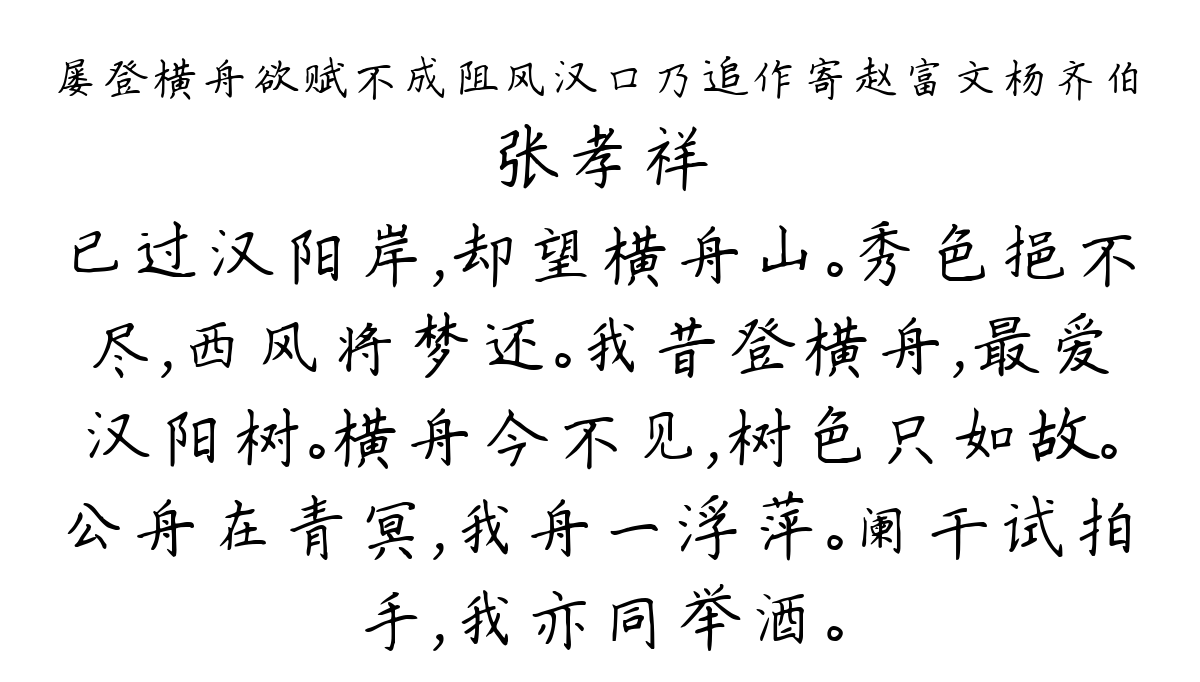 屡登横舟欲赋不成阻风汉口乃追作寄赵富文杨齐伯
张孝祥
已过汉阳岸,却望横舟山。秀色挹不
尽,西风将梦还。我昔登横舟,最爱
汉阳树。横舟今不见,树色只如故。
公舟在青冥,我舟一浮萍。阑干试拍
手,我亦同举酒。